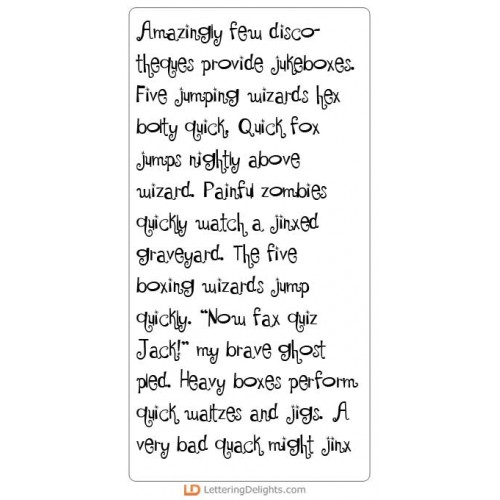 Amazingly few disco-
theques provide jukeboxes.
Five jumping wizards hex
bolty quick. Quick fox
jumps nightly above
wizard. Painful zombies
quickly watch a jinxed
graveyard. The five
boxing wizards jump
quickly. "Now fax quiz
Jack!" my brave ghost
pled. Heavy boxes perform
quick waltzes and jigs. A
very bad quack might jinx
LD LetteringDelights.com